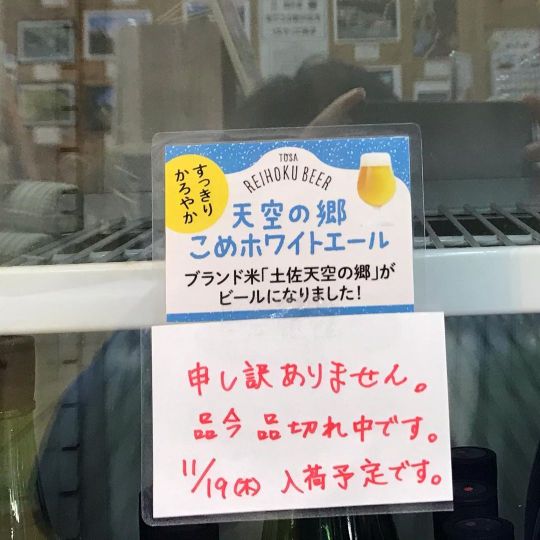 すっきり
かろやか
TOSA
REIHOKU BEER
天空の郷
こめホワイトエール
ブランド米「土佐天空の郷」が
ビールになりました!
申し訳ありません。
品今品切れ中です。
11/19(木)入荷予定です。